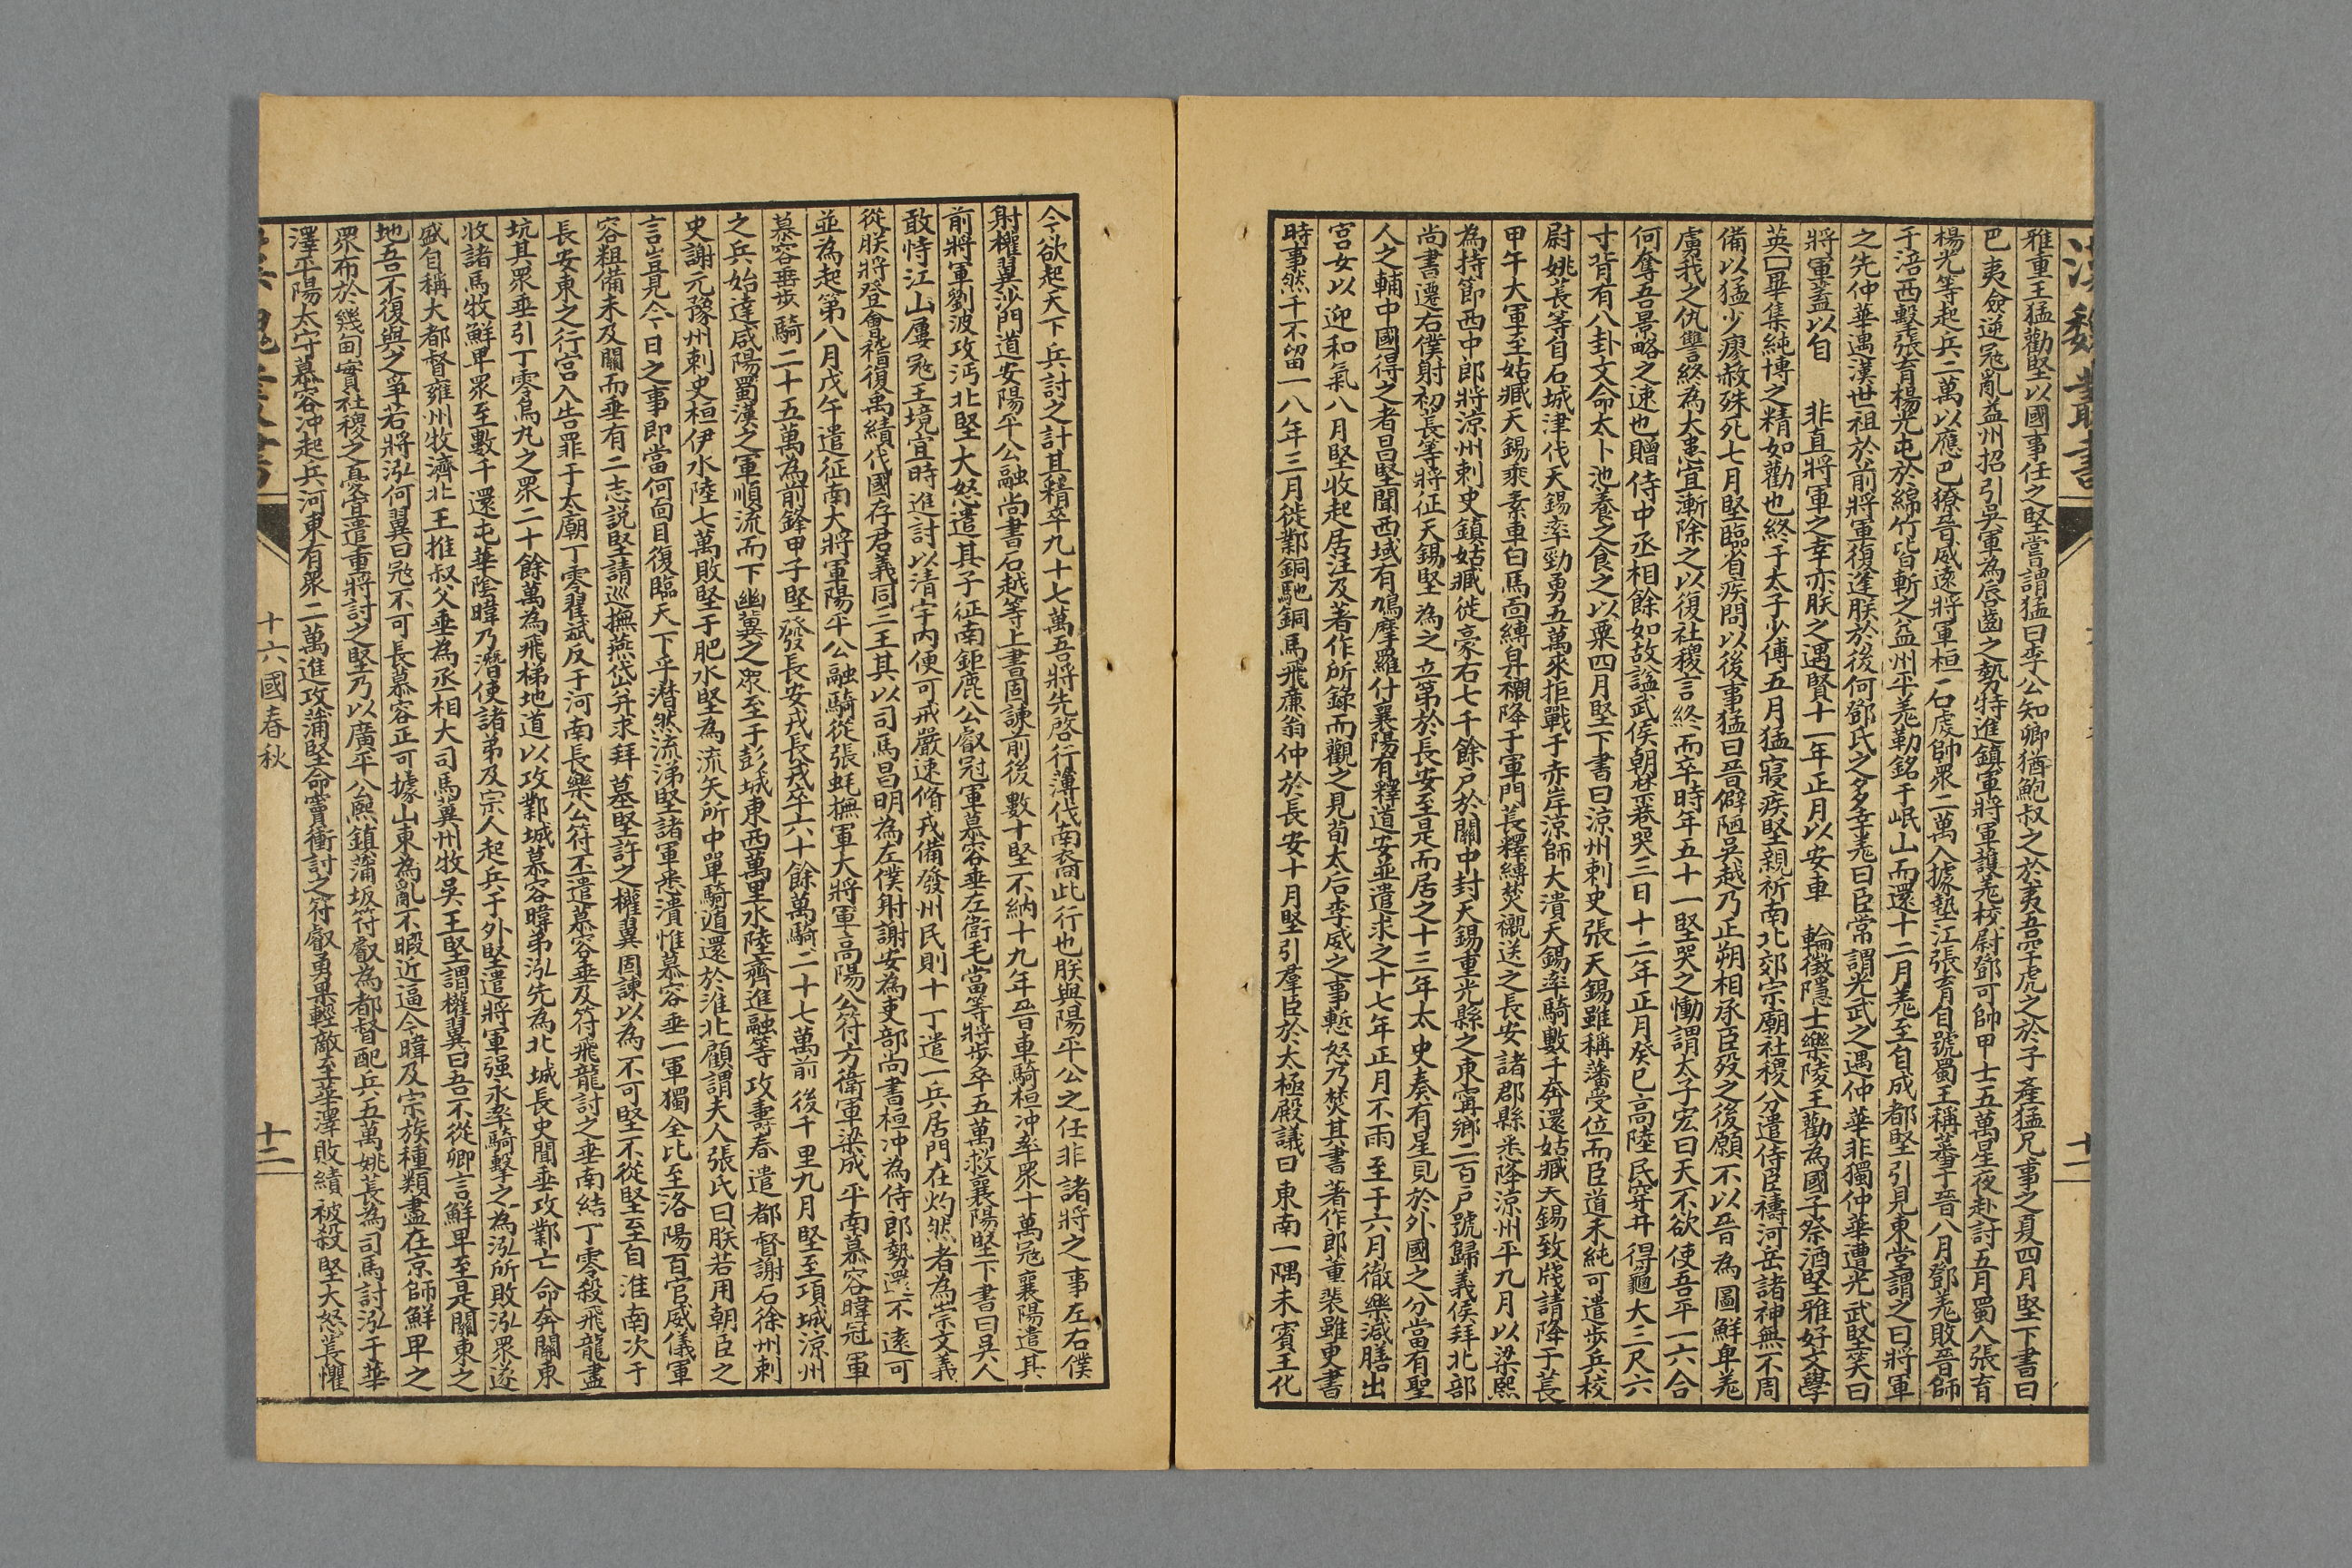 漢魏叢書
十一
雅重王猛勸堅以國事任之堅嘗謂猛曰李公知卿猶鮑叔之於夷吾罕虎之於子產猛兄事之夏四月堅下書曰
巴夷僉逆宼亂益州招引吳軍為唇齒之勢特進鎮軍將軍護羌校尉鄧可帥甲士五萬星夜赴討五月蜀人張育
楊光等起兵二萬以應巴獠晉威遠將軍桓一石虔帥眾二萬入據墊江張育自號蜀王稱藩于晉八月鄧羌敗晉師
于涪西擊張育楊光屯於綿竹皆斬之益州平羌勒銘于岷山而還十二月羌至自成都堅引見東堂謂之曰將軍
之先仲華遇漢世祖於前將軍復逢朕於後何鄧氏之多幸羌曰臣常謂光武之遇仲華非獨仲華遭光武堅笑曰
將軍蓋以自　非直將軍之幸亦朕之遇賢十一年正月以安車　輪徵隱士樂陵王勸為國子祭酒堅雅好文學
英囗畢集純博之精如勸也終于太子少傅五月猛寢疾堅親祈南北郊宗廟社稷分遣侍臣禱河岳諸神無不周
備以猛少瘳赦殊死七月堅臨省疾問以後事猛曰晉僻陋吳越乃正朔相承臣歿之後願不以晉為圖鮮卑羌
虜我之仇讐終為大患宜漸除之以復社稷言終而卒時年五十一堅哭之慟謂太子宏曰天不欲使吾平一六合
何奪吾景略之速也贈侍中丞相餘如故諡武侯朝禁巷哭三日十二年正月癸巳高陸民穿井得龜大三尺六
寸背有八卦文命太卜池養之食之以粟四月堅下書曰涼州刺史張天錫雖稱藩受位而臣道未純可遣步兵校
尉姚萇等自石城津伐天錫率勁勇五萬來拒戰于赤岸涼師大潰天錫率騎數千奔還姑臧天錫致牋請降于萇
甲午大軍至姑臧天錫乘素車白馬面縛舁櫬降于軍門萇釋縛焚櫬送之長安諸郡縣悉降涼州平九月以梁熙
為持節西中郎將涼州刺史鎮姑臧徙豪右七千餘戶於關中封天錫重光縣之東寧鄉二百戶號歸義侯拜北部
尚書遷右僕射初萇等將征天錫堅為之立第於長安至是而居之十三年太史奏有星見於外國之分當有聖
人之輔中國得之者昌堅聞西域有鳩摩羅什襄陽有釋道安並遣求之十七年正月不雨至于六月徹樂減膳出
宮女以迎和氣八月堅收起居注及著作所錄而觀之見苟太后李威之事慙怒乃焚其書著作郎董裴雖更書
時事然千不留一八年三月徙鄴銅駝銅馬飛廉翁仲於長安十月堅引羣臣於太極殿議曰東南一隅未賓王化
今欲起天下兵討之計其精卒九十七萬吾將先啓行薄伐南裔此行也朕與陽平公之任非諸將之事左右僕
射權翼沙門道安陽平公融尚書石越等上書固諫前後數十堅不納十九年晉車騎桓沖率眾十萬宼襄陽遣其
前將軍劉波攻沔北堅大怒遣其子征南鉅鹿公叡冠軍慕容垂左衛毛當等將步卒五萬救襄陽堅下書曰吳人
敢恃江山屢宼王境宜時進討以清宇內便可戒嚴速脩戎備發州民則十丁遣一兵居門在灼然者為崇文義
從朕將登會稽復禹績伐國存君義同三王其以司馬昌明為左僕射謝安為吏部尚書桓沖為侍郎勢還不遠可
並為起第八月戊午遣征南大將軍陽平公融騎從張蚝撫軍大將軍高陽公符方衛軍梁成平南慕容暐冠軍
慕容垂步騎二十五萬為前鋒甲子堅發長安戎長戎卒六十餘萬騎二十七萬前後千里九月堅至項城涼州
之兵始達咸陽蜀漢之軍順流而下幽冀之眾至于彭城東西萬里水陸齊進融等攻壽春遣都督謝石徐州刺
史謝元豫州刺史桓伊水陸七萬敗堅于肥水堅為流矢所中單騎遁還於淮北顧謂夫人張氏曰朕若用朝臣之
言豈見今日之事即當何面目復臨天下乎潸然流涕堅諸軍悉潰惟慕容垂一軍獨全比至洛陽百官威儀軍
容粗備未及關而垂有二志說堅請巡撫燕岱并求拜墓堅許之權翼固諫以為不可堅不從堅至自淮南次于
長安東之行宮入告罪于太廟丁零翟斌反于河南長樂公符丕遣慕容垂及符飛龍討之垂南結丁零殺飛龍盡
坑其眾垂引丁零烏丸之眾二十餘萬為飛梯地道以攻鄴城慕容暐弟泓先為北城長史聞垂攻鄴亡命奔關東
收諸馬牧鮮卑眾至數千還屯華陰暐乃潛使諸弟及宗人起兵于外堅遣將軍强永率騎擊之為泓所敗泓眾遂
盛自稱大都督雍州牧濟北王推叔父垂為丞相大司馬冀州牧吳王堅謂權翼曰吾不從卿言鮮卑至是關東之
地吾不復與之爭若將泓何翼曰宼不可長慕容正可據山東為亂不暇近逼今暐及宗族種類盡在京師鮮卑之
眾布於畿甸實社稷之憂宜遣重將討之堅乃以廣平公熙鎮蒲坂符叡為都督配兵五萬姚萇為司馬討泓于華
澤平陽太守慕容沖起兵河東有眾二萬進攻蒲堅命竇衝討之符叡勇果輕敵至華澤敗績被殺堅大怒萇懼
漢魏叢書
十六國春秋
十二